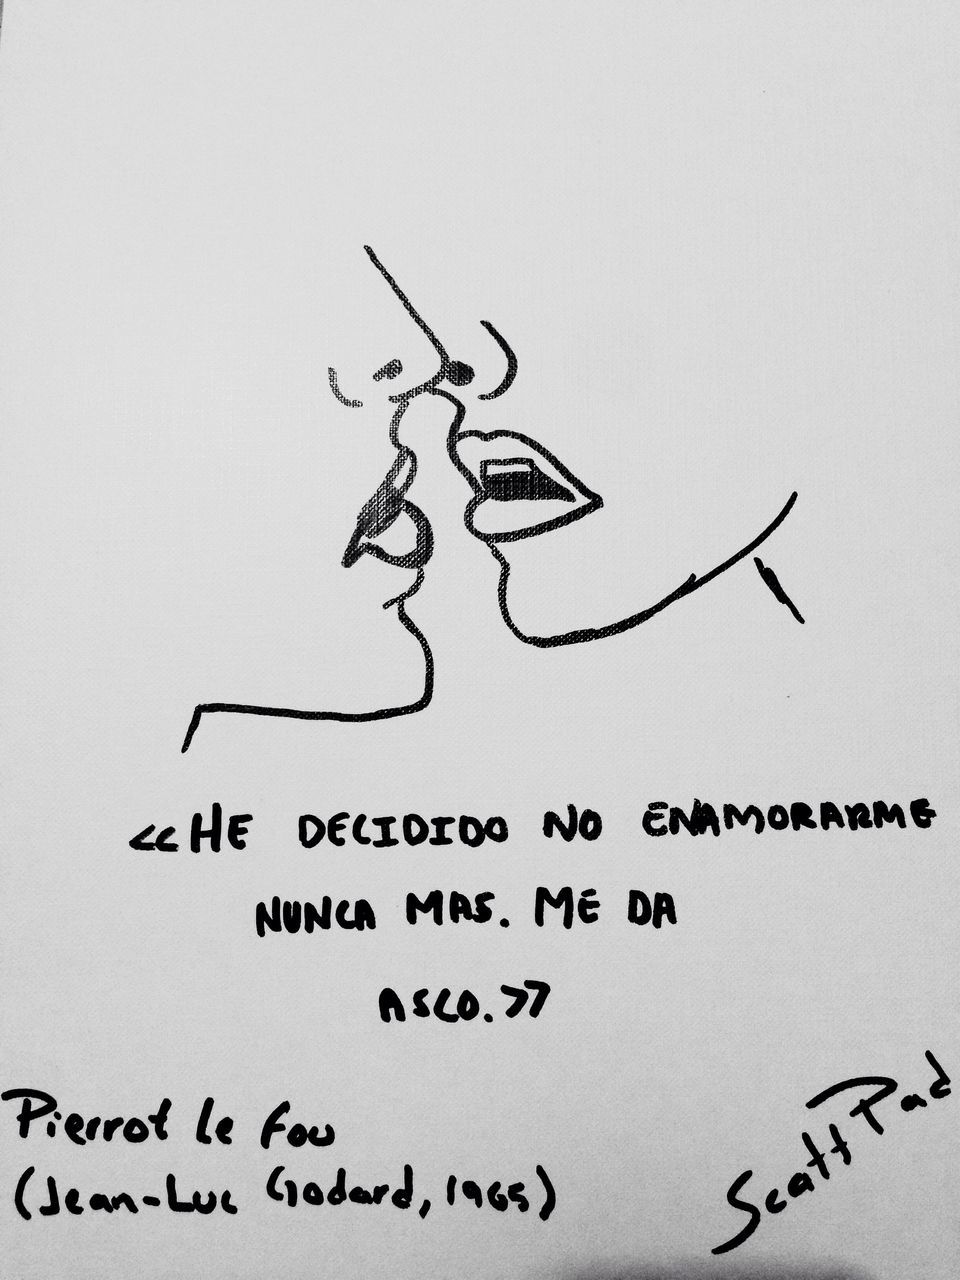 <<HE DECIDIDO NO ENAMORARME
NUNCA MAS. ME DA
ASCO.>>
Pierrot le fou
(Jean-Luc Godard, 1965)
Scatt Pad